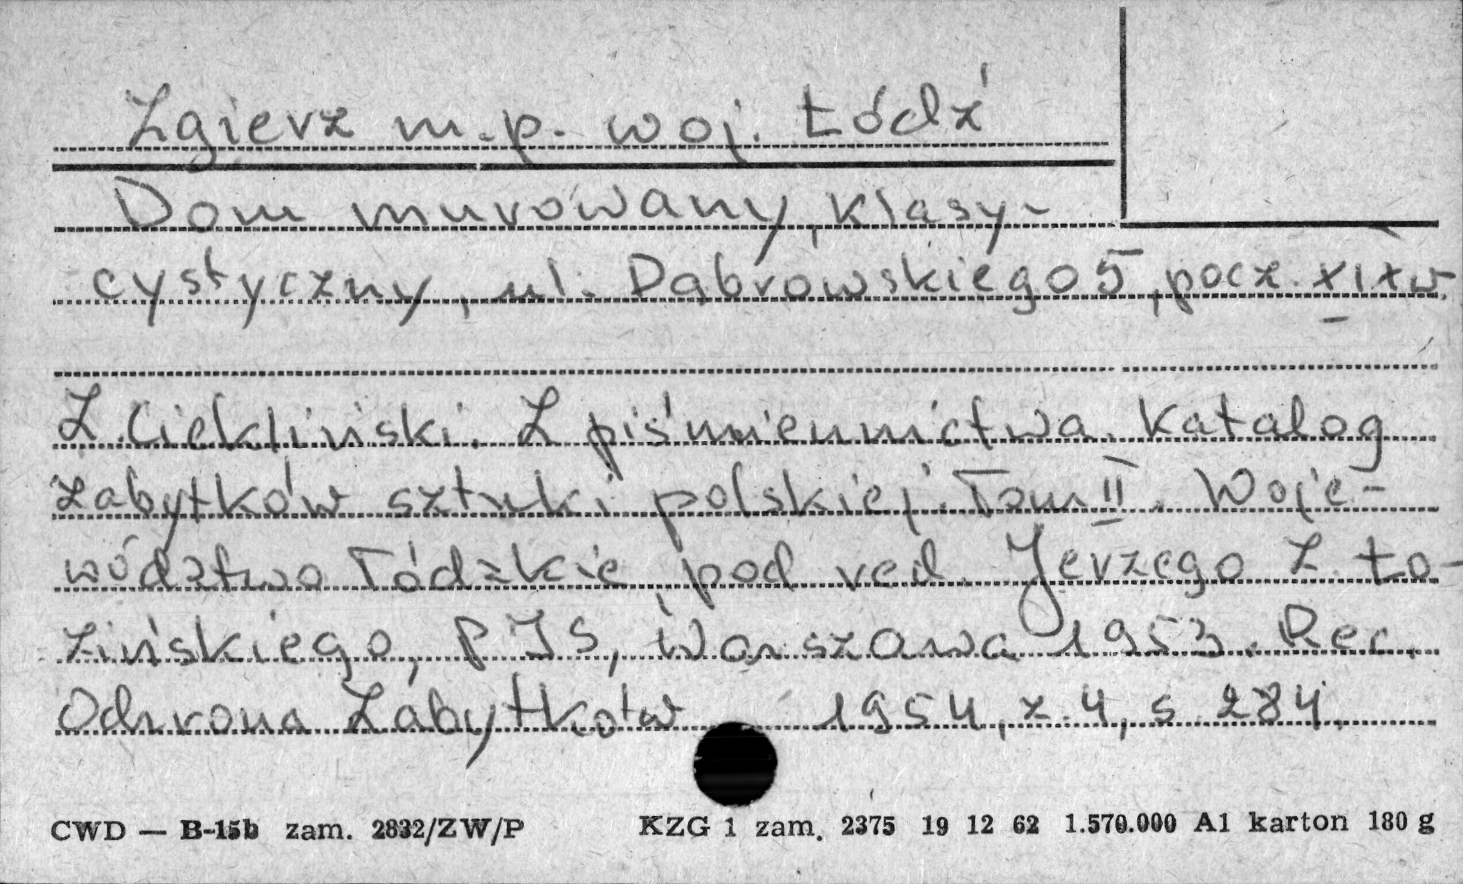 Zgierz m.p. woj. Łódź
Dom murowany, klasy-
cystyczny, ul. Dąbrowskiego 5, pocz. XIX w.
Z. Ciekliński. Z piśmiennictwa. Katalog
zabytków sztuki polskiej. Tom II. Woje-
wództwo łódzkie, pod red. Jerzego Z. Ło-
zińskiego, PIS, Warszawa 1953. Rec.
Ochrona Zabytków 1954, z. 4, s. 284.
CWD — B-15b zam. 2832/ZW/P KZG 1 zam. 2375 19 12 62 1.570.000 A1 karton 180 g